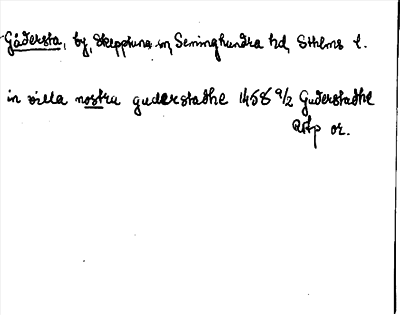 Gådersta, by, Skepptuna sn, Seminghundra hd, Sthlms l.
in villa nostra guderstadhe 1458 9/2 Guderstadhe
RAp or.